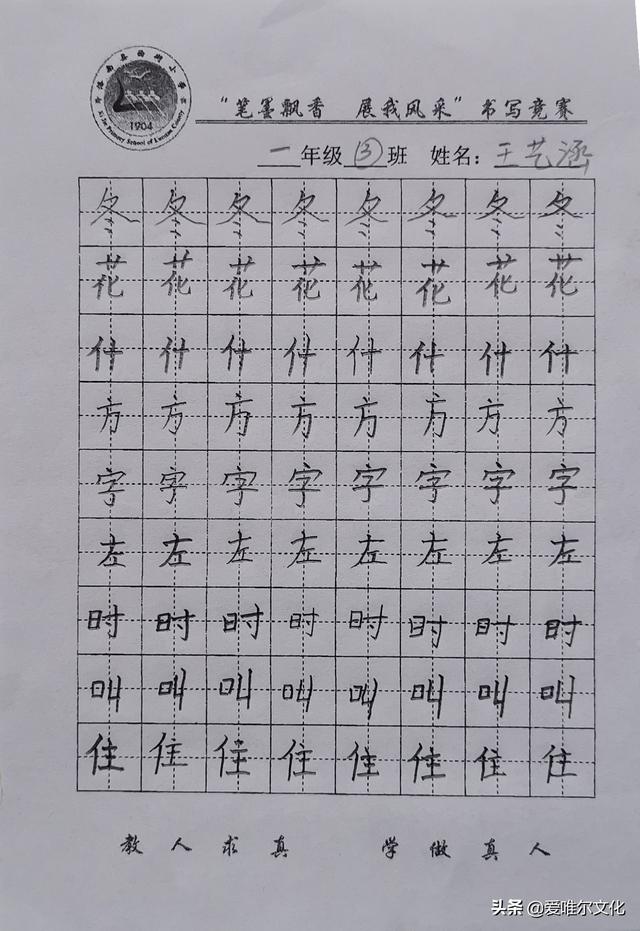 1904
“笔墨飘香 展我风采”书写竞赛
一年级③班 姓名：王艺涵
冬冬冬冬冬冬冬冬
花花花花花花花花
什什什什什什什什
方方方方方方方方
字字字字字字字字
左左左左左左左左
时时时时时时时时
叫叫叫叫叫叫叫叫
住住住住住住住住
教人求真 学做真人
头条 @爱唯尔文化